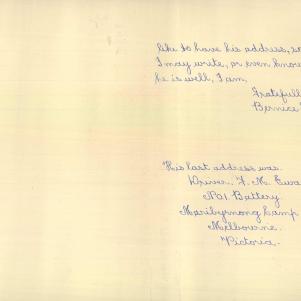 like to have his address, so
I may write, or even know
he is well, I am.
Gratefull
Bernice
His last address was.
Driver. F. M. Ewa
No1. Battery
Maribyrnong Camp
Melbourne.
Victoria.